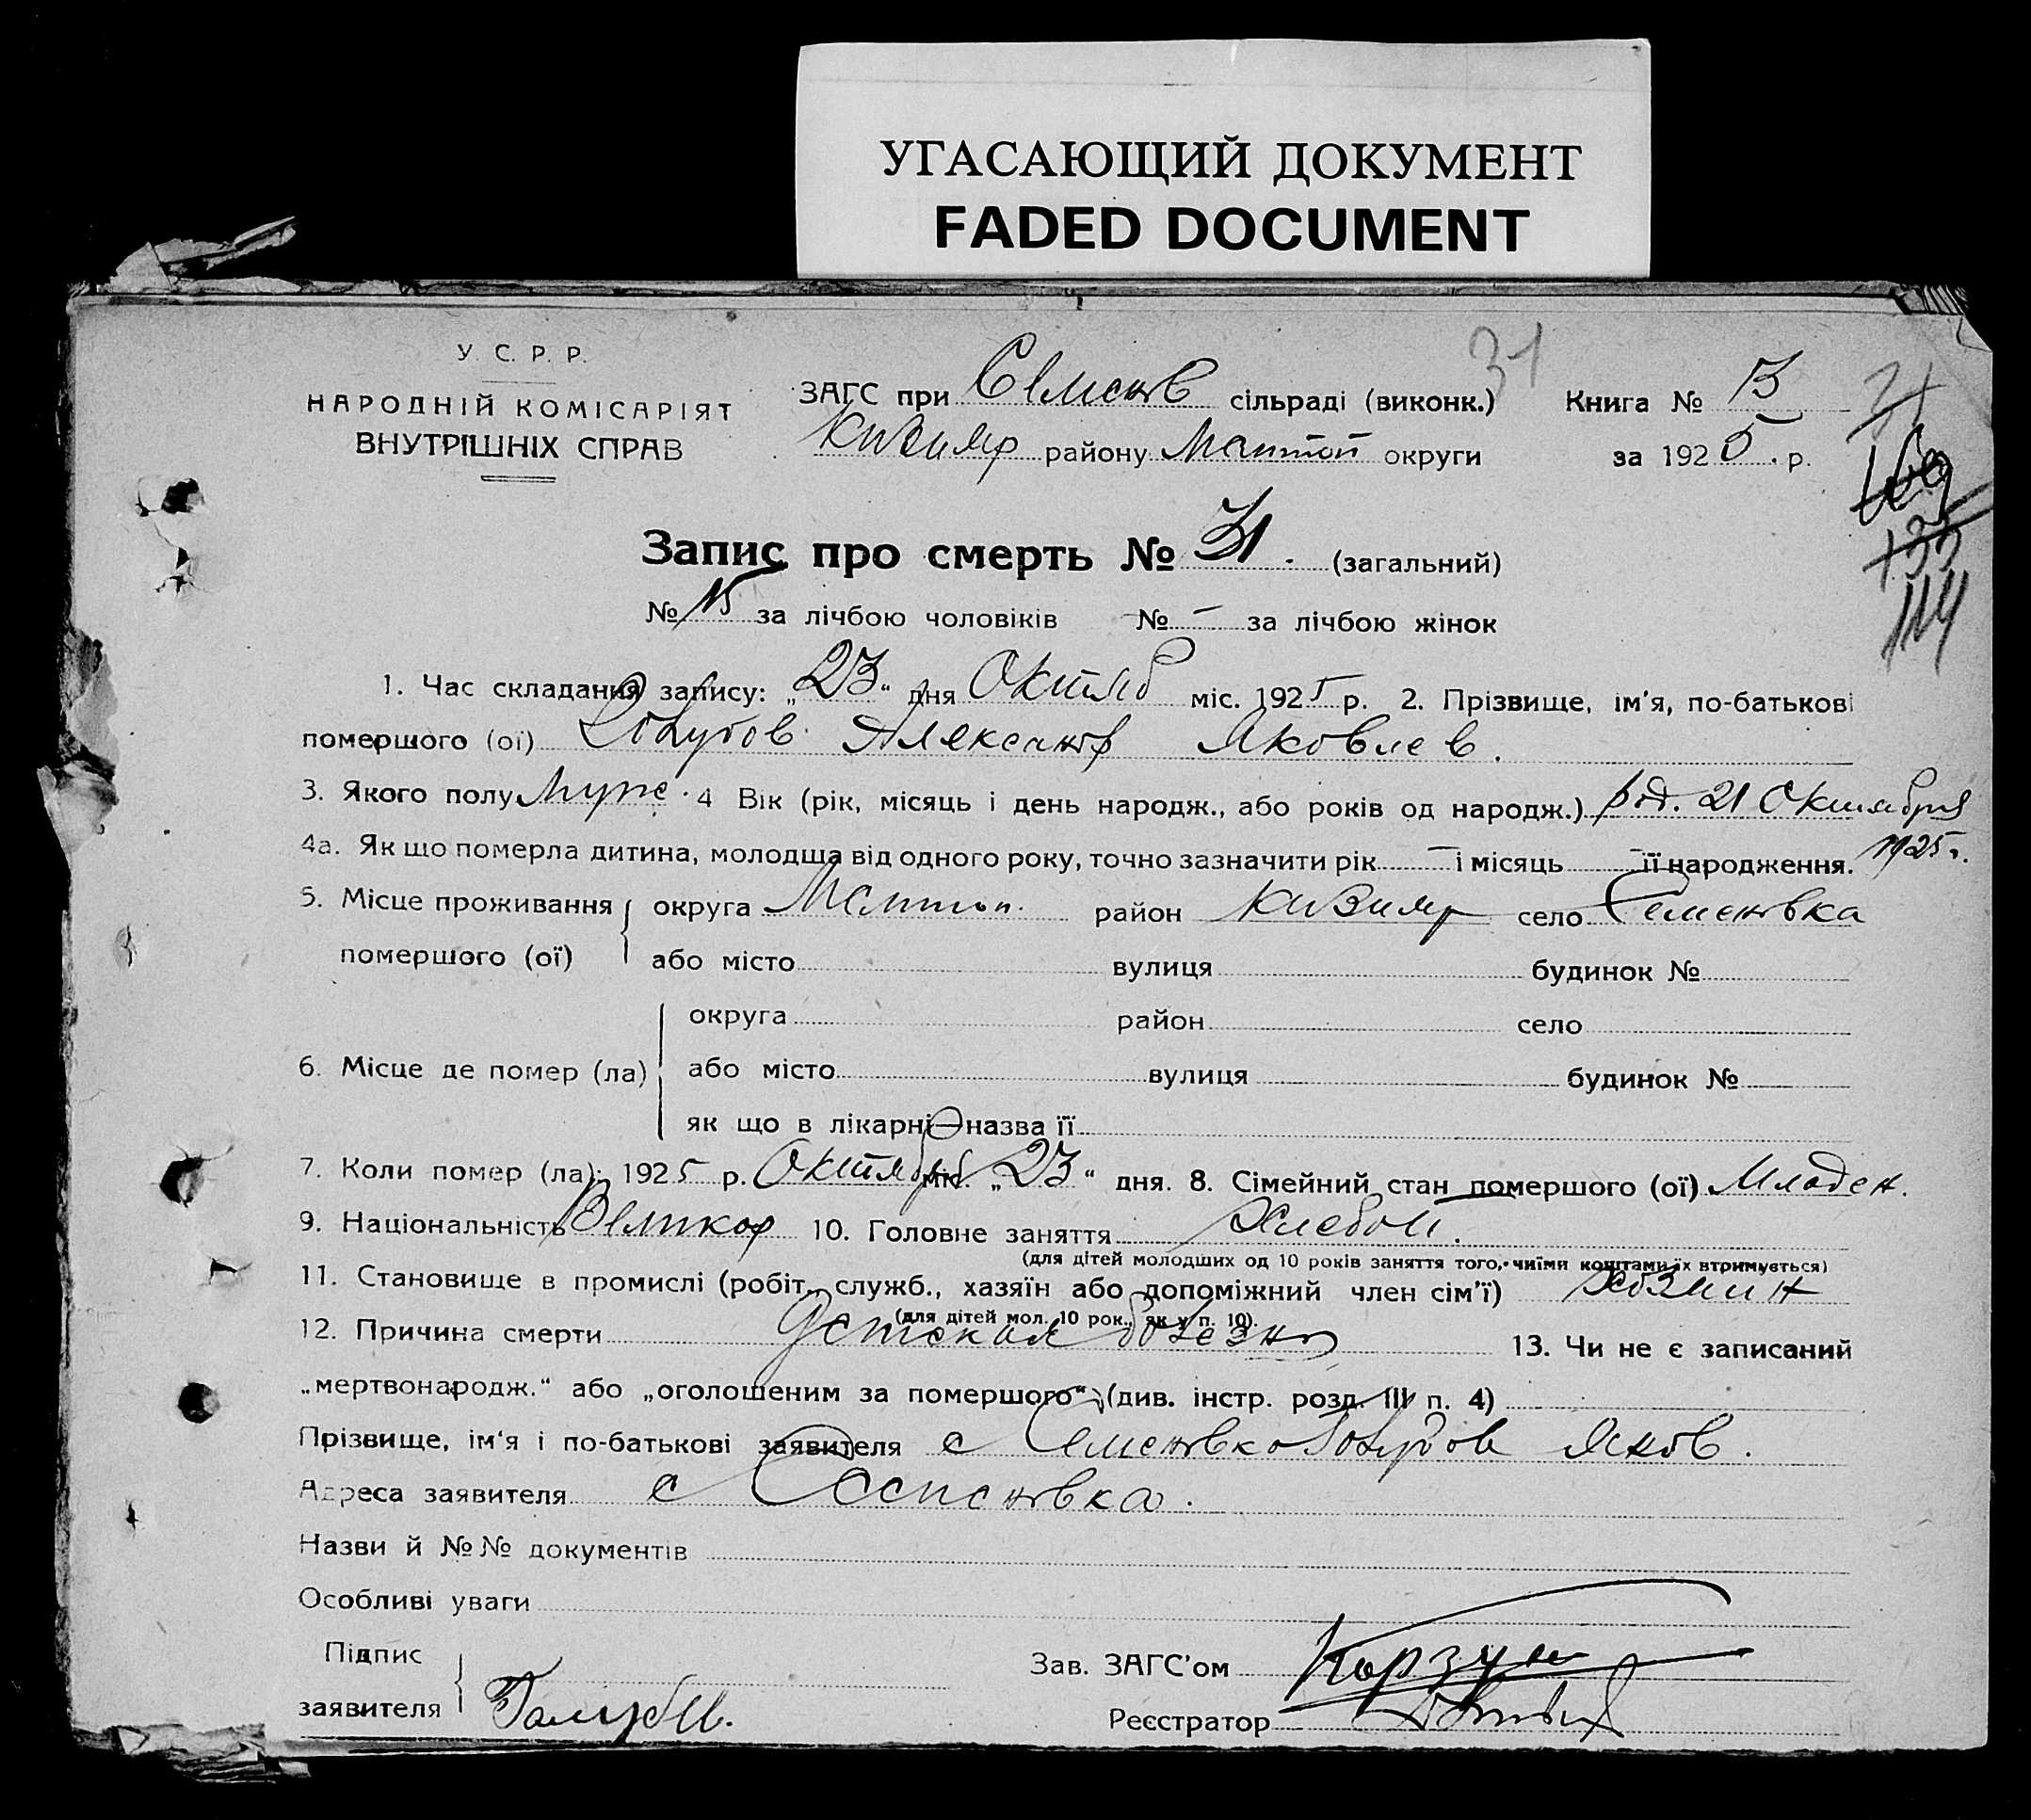 УГАСАЮЩИЙ ДОКУМЕНТ
FADED DOCUMENT
У. С. Р. Р.
НАРОДНІЙ КОМІСАРІЯТ
ВНУТРІШНІХ СПРАВ
ЗАГС при Семенов сільраді (виконк.) 31
району округи
Книга № В
за 1925 р.
31
169
133
114
Запис про смерть № 31. (загальний)
№ 15 за лічбою чоловіків № – за лічбою жінок
1. Час складання запису: „23“ дня Октяб міс. 1925 р. 2. Прізвище, ім'я, по-батькові
помершого (ої) Александр Яковлев.
3. Якого полу Муж. 4 Вік (рік, місяць і день народж., або років од народж.) род. 21 Октября
1925 г.
4а. Як що померла дитина, молодща від одного року, точно зазначити рік – і місяць – її народження.
5. Місце проживання помершого (ої) округа район село Семеновка
або місто вулиця будинок №
6. Місце де помер (ла) округа район село
або місто вулиця будинок №
як що в лікарні—назва її
7. Коли помер (ла): 1925 р. Октябрь міс. „23“ дня. 8. Сімейний стан помершого (ої) Младен.
9. Національність Великор 10. Головне заняття Хлебоп.
(для дітей молодших од 10 років заняття того, чиїми коштами їх втримується)
11. Становище в промислі (робіт., служб., хазяїн або допоміжний член сім'ї) Хозяин
(для дітей мол. 10 рок., як у п. 10).
12. Причина смерти Детская болезнь 13. Чи не є записаний
„мертвонародж.“ або „оголошеним за помершого“ (див. інстр. розд. III п. 4)
Прізвище, ім'я і по-батькові заявителя с Семеновка Яков.
Адреса заявителя с Семеновка.
Назви й №№ документів
Особливі уваги
Підпис заявителя
Зав. ЗАГС'ом Корзун
Реєстратор